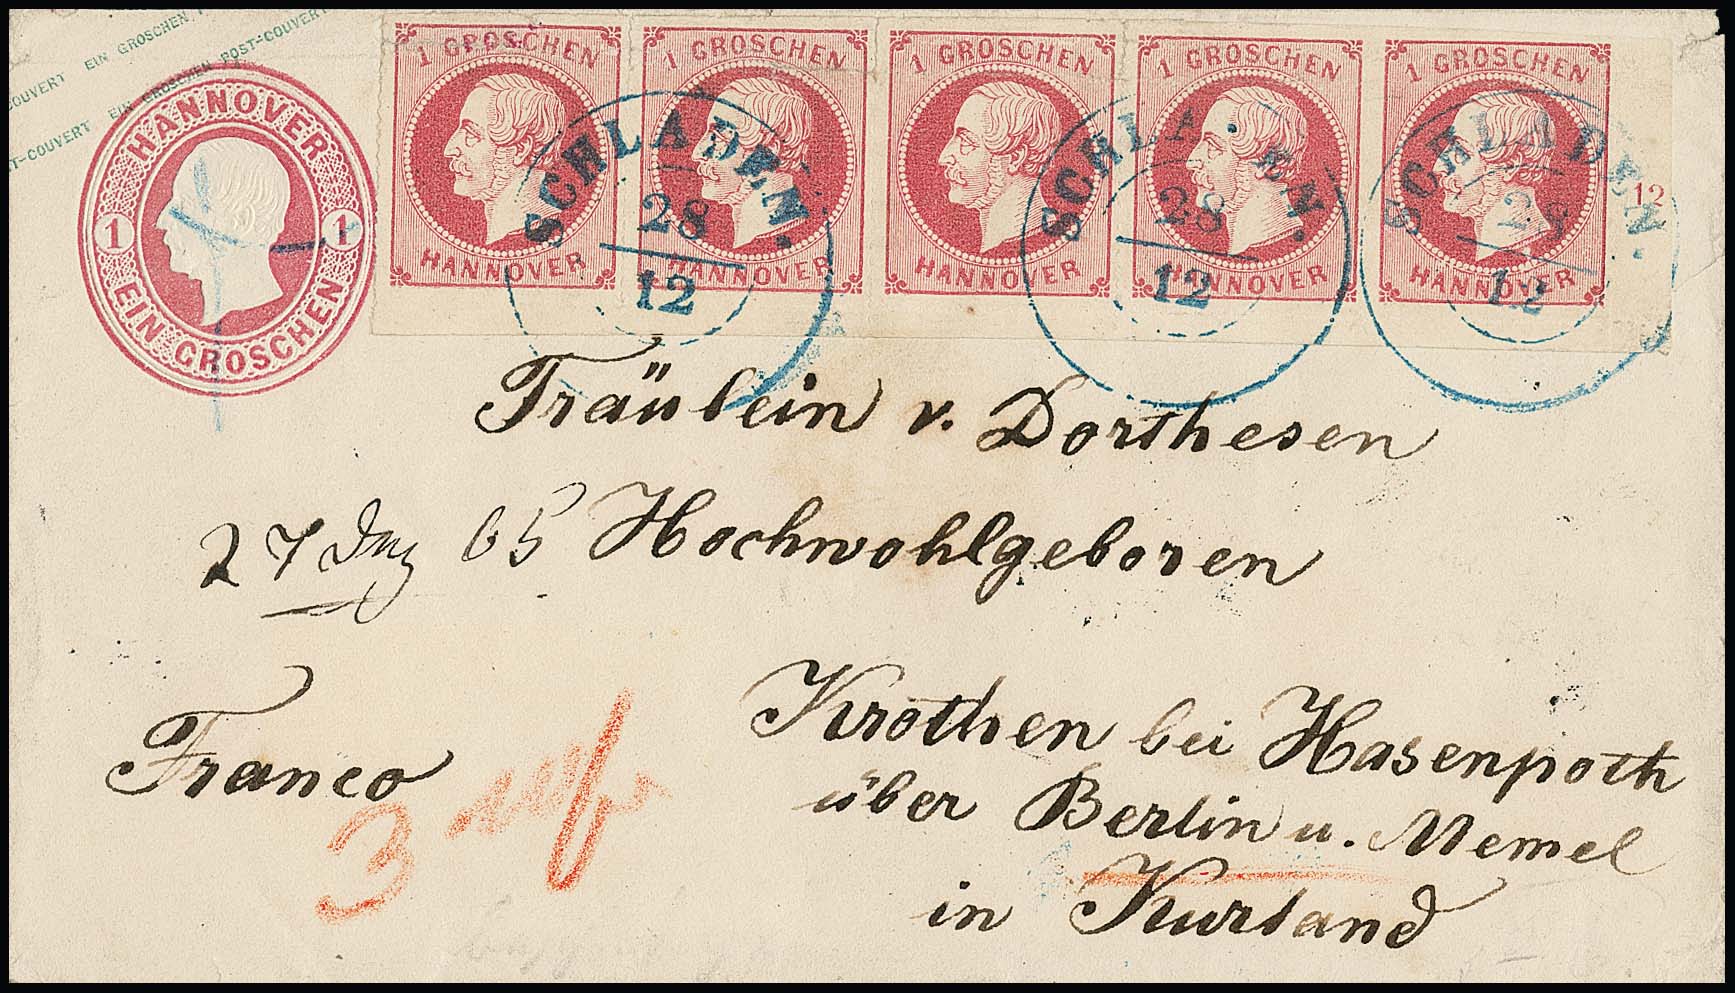 POST-COUVERT EIN GROSCHEN POST-COUVERT
COUVERT EIN GROSCHEN
HANNOVER
1 1
EIN GROSCHEN
1 GROSCHEN
HANNOVER
1 GROSCHEN
HANNOVER
1 GROSCHEN
HANNOVER
1 GROSCHEN
HANNOVER
1 GROSCHEN
HANNOVER
12
SCHLADEN.
28
12
SCHLADEN.
28
12
SCHLADEN.
28
12
Fräulein v. Dorthesen
27 65 Hochwohlgeboren
Franco
3
Krothen bei Hasenpoth
über Berlin u. Memel
in Kurland